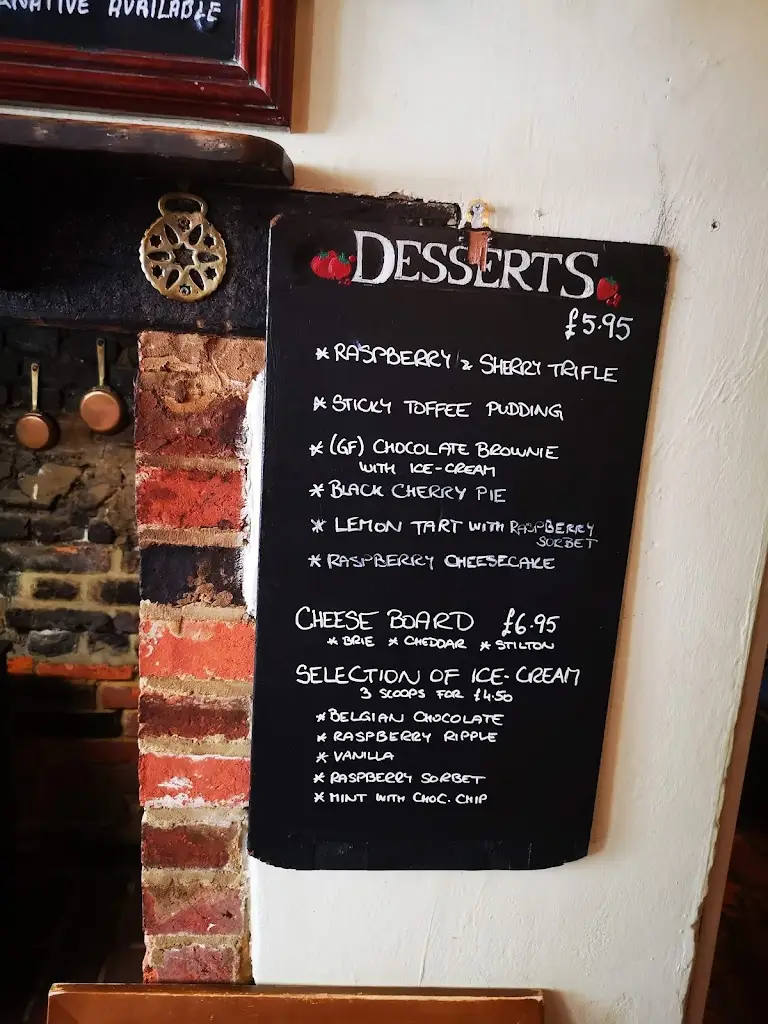 AVAILABLE
DESSERTS
£5.95
* RASPBERRY & SHERRY TRIFLE
* STICKY TOFFEE PUDDING
* (GF) CHOCOLATE BROWNIE
WITH ICE-CREAM
* BLACK CHERRY PIE
* LEMON TART WITH RASPBERRY
SORBET
* RASPBERRY CHEESECAKE
CHEESE BOARD £6.95
* BRIE * CHEDDAR * STILTON
SELECTION OF ICE-CREAM
3 SCOOPS FOR £4.50
* BELGIAN CHOCOLATE
* RASPBERRY RIPPLE
* VANILLA
* RASPBERRY SORBET
* MINT WITH CHOC. CHIP